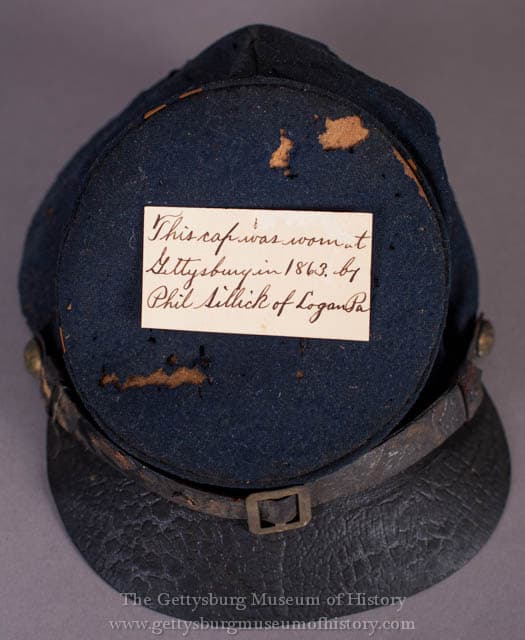 This cap was worn at
Gettysburg in 1863, by
Phil Sillick of Logan Pa
The Gettysburg Museum of History
www.gettysburgmuseumofhistory.com